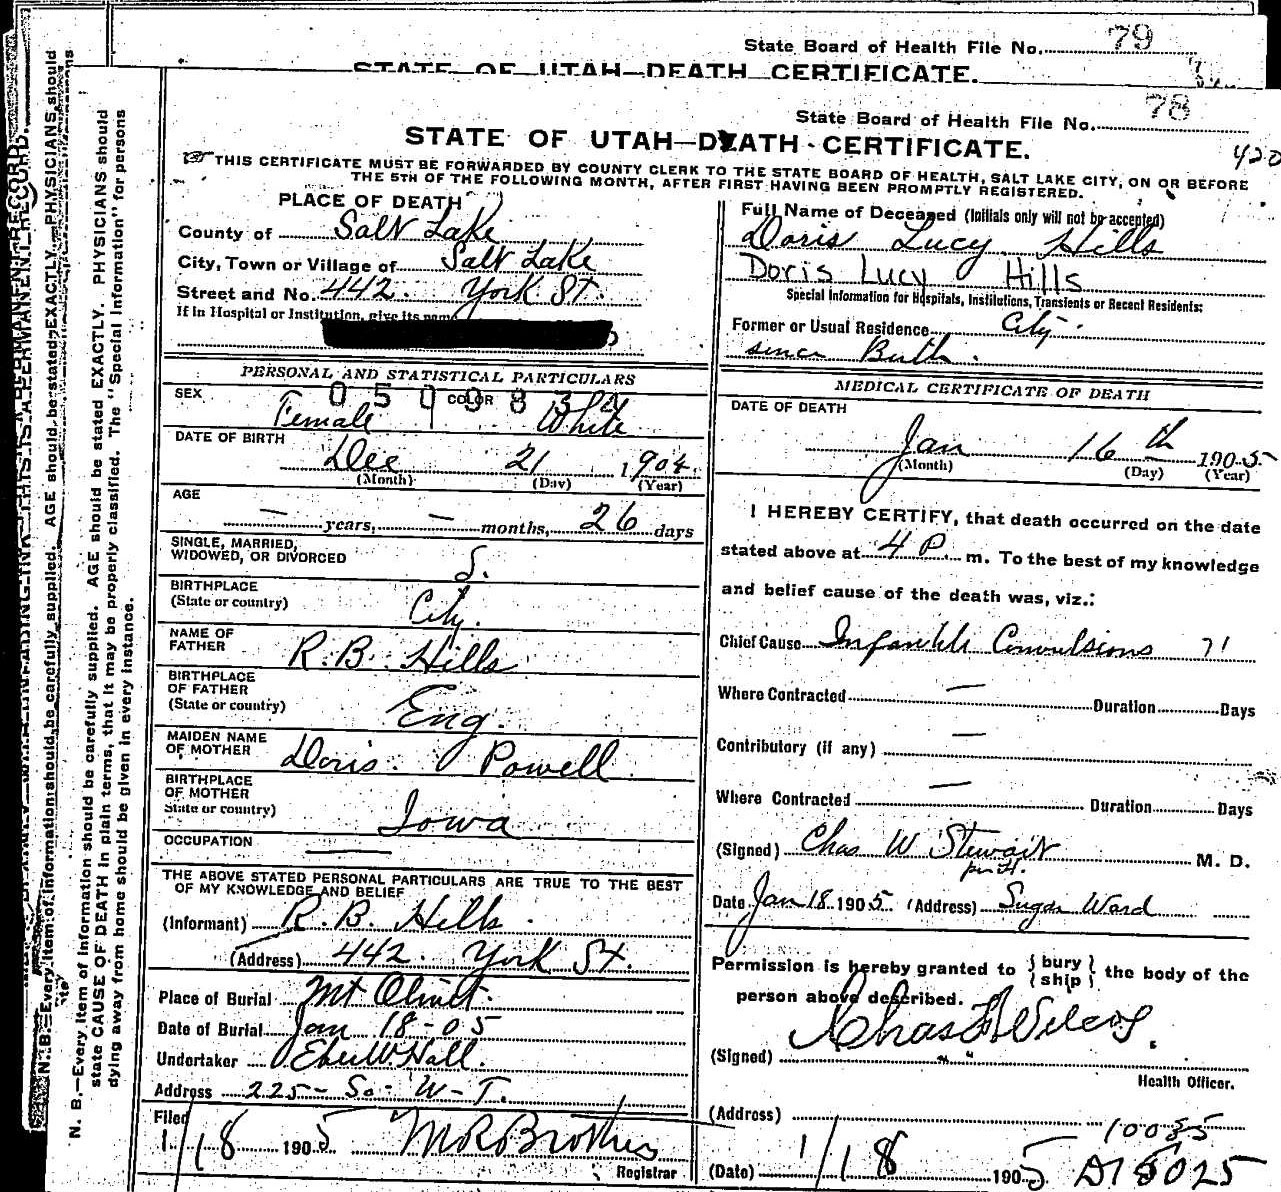 State Board of Health File No. 79
STATE OF UTAH—DEATH CERTIFICATE.
State Board of Health File No. 78
STATE OF UTAH—DEATH CERTIFICATE.
420
THIS CERTIFICATE MUST BE FORWARDED BY COUNTY CLERK TO THE STATE BOARD OF HEALTH, SALT LAKE CITY, ON OR BEFORE
THE 5TH OF THE FOLLOWING MONTH, AFTER FIRST HAVING BEEN PROMPTLY REGISTERED.
PLACE OF DEATH
County of Salt Lake
City, Town or Village of Salt Lake
Street and No. 442. York St.
If in Hospital or Institution, give its name
PERSONAL AND STATISTICAL PARTICULARS
0509832
SEX Female COLOR White
DATE OF BIRTH
Dec 21 1904
(Month) (Day) (Year)
AGE
— years, — months, 26 days
SINGLE, MARRIED,
WIDOWED, OR DIVORCED S.
BIRTHPLACE
(State or country) City.
NAME OF
FATHER R. B. Hills
BIRTHPLACE
OF FATHER
(State or country) Eng.
MAIDEN NAME
OF MOTHER Doris. Powell
BIRTHPLACE
OF MOTHER
State or country) Iowa
OCCUPATION —
THE ABOVE STATED PERSONAL PARTICULARS ARE TRUE TO THE BEST
OF MY KNOWLEDGE AND BELIEF
(Informant) R. B. Hills.
(Address) 442. York St.
Place of Burial Mt Olivet.
Date of Burial Jan 18-05
Undertaker Eber W Hall.
Address 225- So- W-T.
Filed
1/18 1905 M R Brothers
Registrar
Full Name of Deceased (Initials only will not be accepted)
Doris Lucy Hills
Doris Lucy Hills
Special Information for Hospitals, Institutions, Transients or Recent Residents:
Former or Usual Residence City.
since Birth.
MEDICAL CERTIFICATE OF DEATH
DATE OF DEATH
Jan 16th 1905
(Month) (Day) (Year)
I HEREBY CERTIFY, that death occurred on the date
stated above at 4 P. m. To the best of my knowledge
and belief cause of the death was, viz.:
Chief Cause Infantile Convulsions 71
Where Contracted — Duration Days
Contributory (if any) —
Where Contracted — Duration Days
(Signed) Chas W Stewart M. D.
Date Jan 18 1905 (Address) Sugar Ward
Permission is hereby granted to {bury} {ship} the body of the
person above described.
(Signed) Chas F Wilcox.
Health Officer.
(Address)
10085
(Date) 1/18 1905 D15025
N. B.—Every item of information should be carefully supplied. AGE should be stated EXACTLY. PHYSICIANS should
state CAUSE OF DEATH in plain terms, that it may be properly classified. The "Special Information" for persons
dying away from home should be given in every instance.
N. B.—Every item of information should be carefully supplied. AGE should be stated EXACTLY. PHYSICIANS should
THIS IS A PERMANENT RECORD.